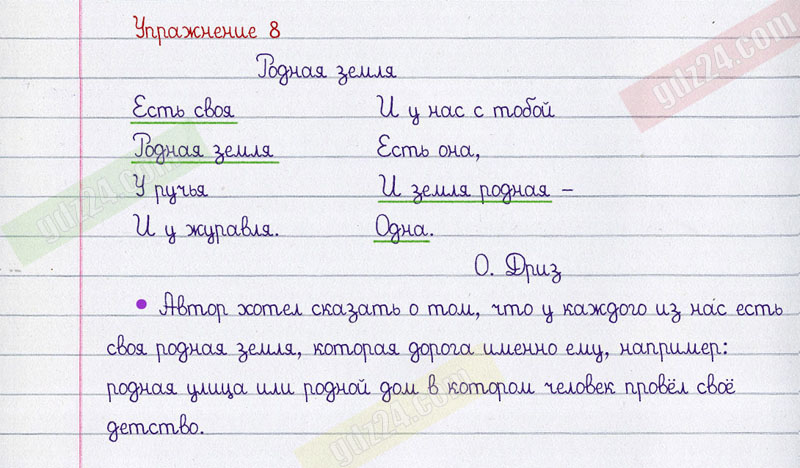 Упражнение 8
Родная земля
Есть своя
Родная земля
У ручья
И у журавля.
И у нас с тобой
Есть она,
И земля родная –
Одна.
О. Дриз
• Автор хотел сказать о том, что у каждого из нас есть
своя родная земля, которая дорога именно ему, например:
родная улица или родной дом в котором человек провёл своё
детство.
gdz24.com
gdz24.com
gdz24.com